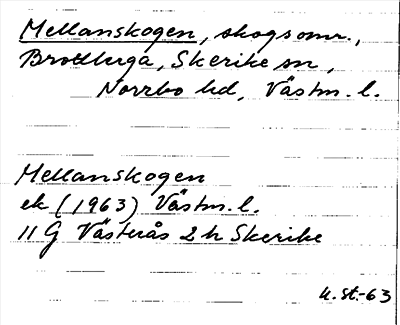 Mellanskogen, skogsomr.,
Brottberga, Skerike sn,
Norrbo hd, Västm. l.
Mellanskogen
ek (1963) Västm. l.
11 G Västerås 2h Skerike
k. st.-63